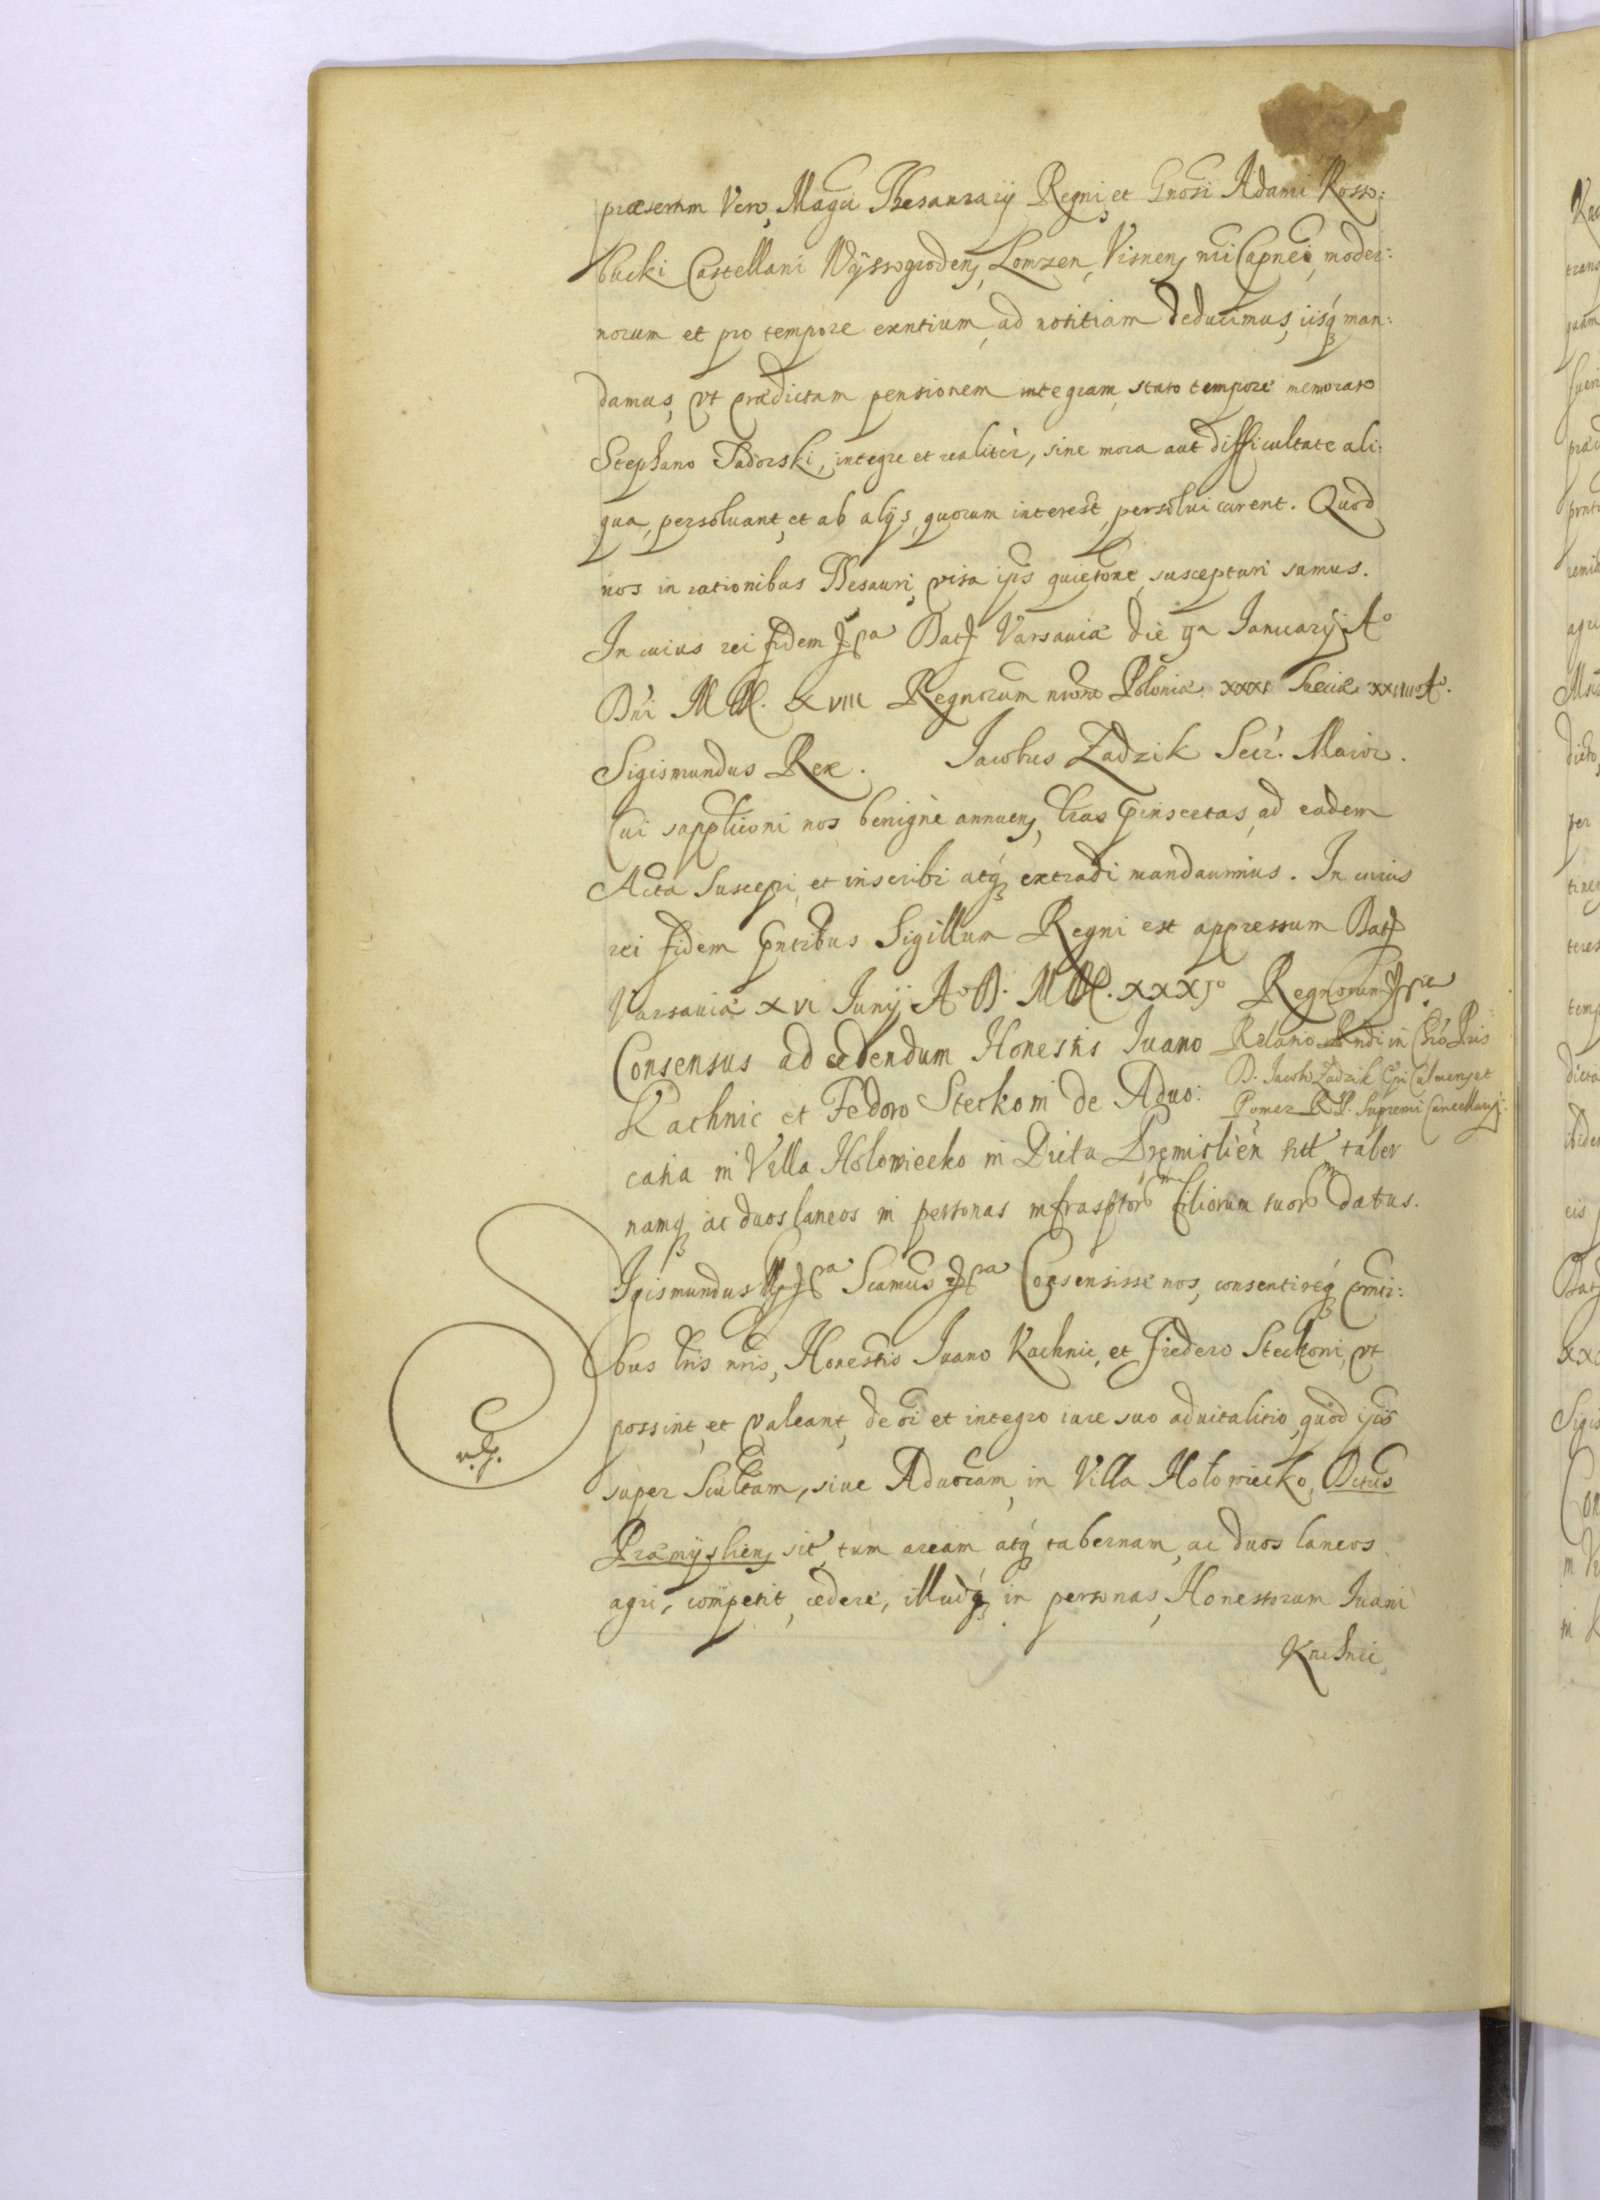 præsertim Vero, Magci Thesaurarij Regni, et Gnosi Adami Kosso:
bucki Castellani Wyssogroden, Lomzen, Visnen, nri Capnei, moder:
norum et pro tempore exntium, ad notitiam deducimus, iisq man:
damus, vt prædictam pensionem integram, stato tempore memorato
Stephano Sadorski, integre et realiter, sine mora aut difficultate ali:
qua, persoluant, et ab alijs, quorum interest, persolui curent. Quod
nos in rationibus Thesauri, visa ipis quietone, suscepturi sumus.
In cuius rei fidem Dat Varsauiæ die Januarij Ao
Dni M. XVIII Regnorum nrorum Poloniæ XXXI Sueciæ XXIIII Ao.
Sigismundus Rex. Jacobus Zadzik Secr. Maior.
Cui supplicioni nos benigne annuen, lras pinsertas, ad eadem
Acta suscepi, et inscribi atq extradi mandauimus. In cuius
rei fidem pntibus Sigillum Regni est appressum Dat
Varsauiæ XVI Junij Ao D. M. XXXIo Regnorum
Consensus ad cedendum Honestis Iuano
Kachnic et Fedoro Steckoni de Aduo:
Relatio Rndi in Chro Pris
D. Jacobi Zadzik Epi Culmen et
Pomez R. P. Supremi Cancellarij:
catia in Villa Holowiecko in Dictu Premislien sitt taber
namq ac duos laneos in personas infrasptor filiorum suor datus.
Sigismundus Consensisse nos, consentireq pnti:
bus lris nris, Honestis Iuano Kachnic, et Fiedero Steckoni, vt
possint, et valeant, de oi et integro iure suo aduitalitio, quod ipis
super Scultam, siue Aduocam, in Villa Holowiecko, Dctus
Præmyslien, sit, tum aream atq tabernam, ac duos laneos
agri, competit, cedere, illudq in personas, Honestorum Iuani
Knihnic